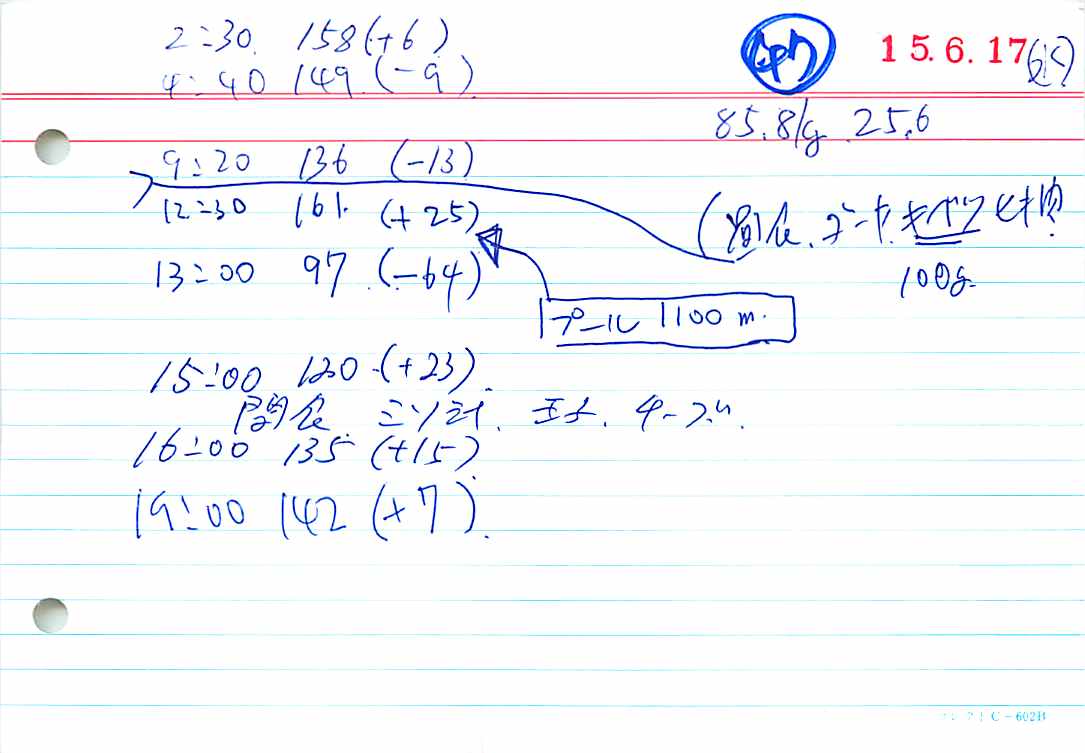 15.6.17(水)
2:30 158(+6)
4:40 149(-9)
85.8kg 25.6
9:20 136 (-13)
12:30 161 (+25)
(間食、ヌード、キャベツと
100g
13:00 97 (-64)
プール 1100 m.
15:00 120 (+23).
間食 ミソ汁、玉子、チーズ.
16:00 135 (+15)
19:00 142 (+7).
C-602B